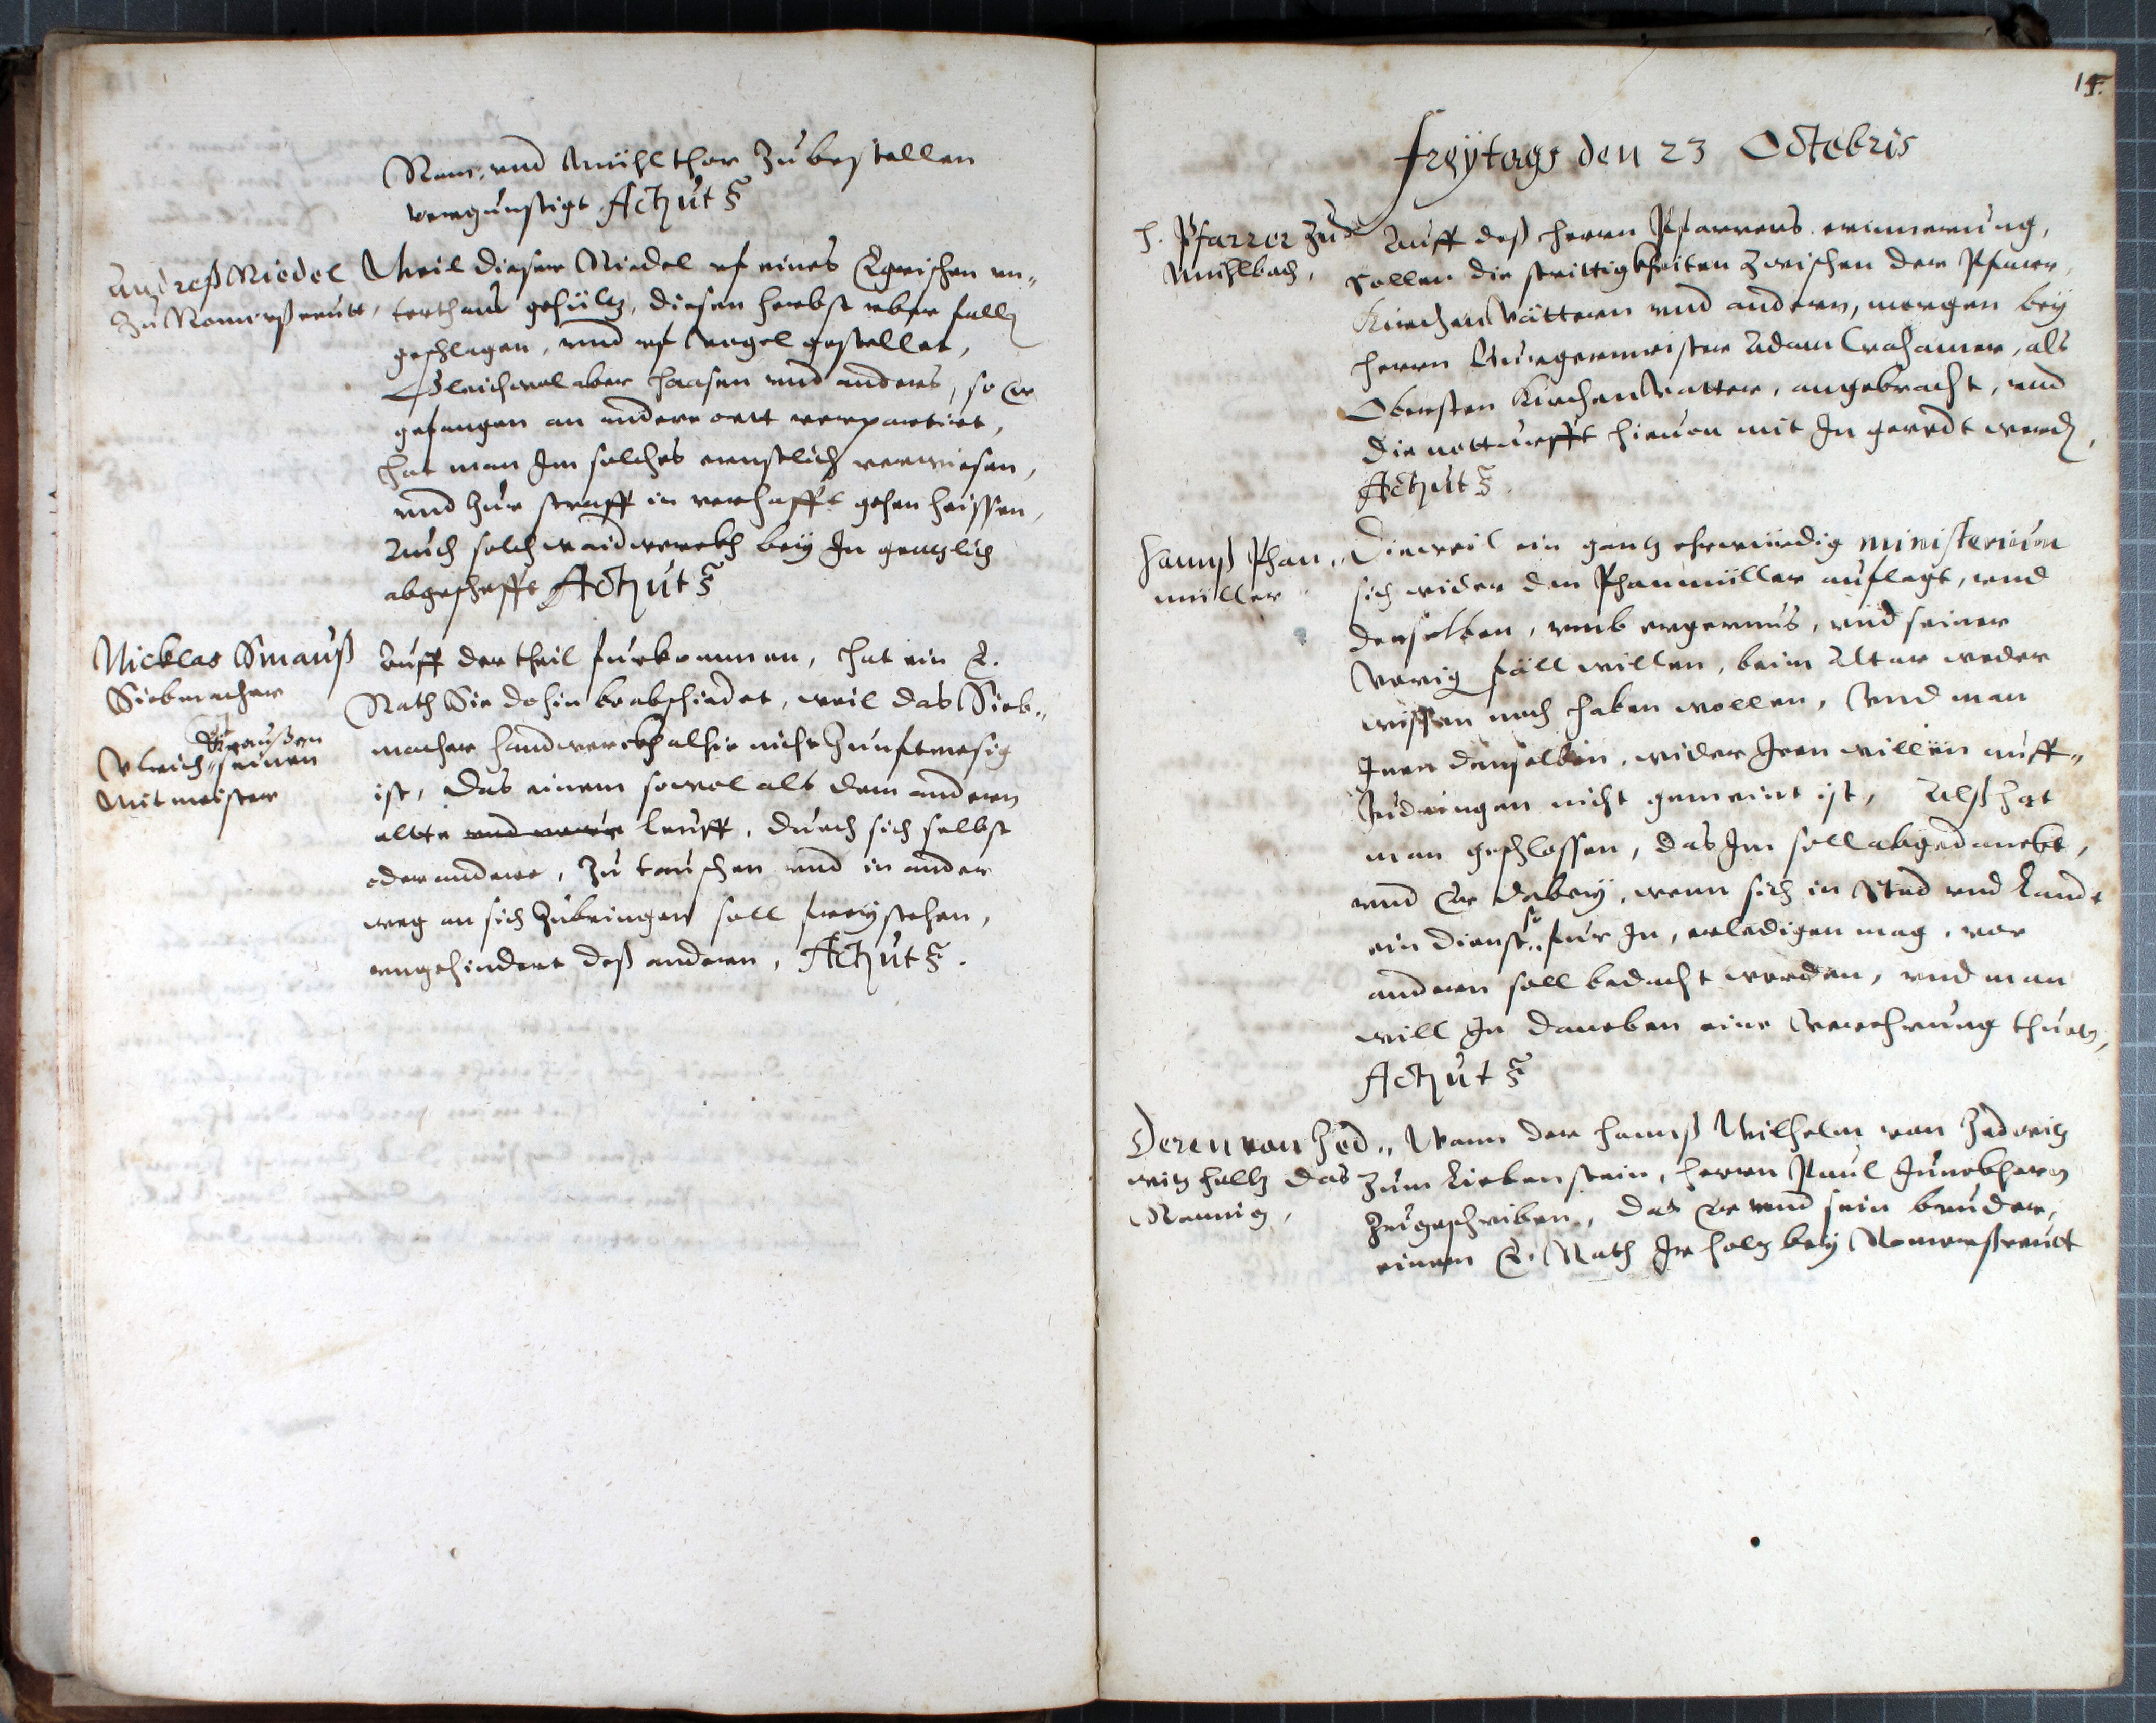 Ram. vnd Mühlthor Zubestellen
vergünstigt Actz ut s
Andreß Riedel
Zu Nonnersreutt,
Weil dieser Riedel vf eines Egrischen vn„
terthans gehültz, diesen herbst vber
geschlagen, vnd vf Vogel gestellet,
Gleichwol aber haasen vnd anders, so Er
gefangen an andere ortt verpartirt,
hat man Im solches ernstlich verwiesen,
vnd zur straff in verhafft gehen heissen,
Auch solch waidwerckh bey In gentzlich
abgeschafft Actz ut s
Nicklas Smauß
Siebmacher
Straußen
Vlrich„ seinen
Mitmeister
Auff der theil furkommen, hat ein E.
Rath Sie dohin beabschiedet, weil das Sieb„
macher handwerckh alhie nicht Zunftmesig
ist, Das einem sowol als dem andern
allte vnd neue leufft, durch sich selbst
oder andere, Zu tauschen vnd in ander
weg an sich Zubringen soll freystehen,
vngehindert deß andern, Actz ut s.
15.
Freytags den 23 Octobris
H. Pfarrer zu
Mühlbach,
Auff deß herrn Pfarrers erinnerung,
sollen die strittigkheiten zwischen der Pfarr,
KirchenVättern vnd andern, morgen bey
herrn Burgermeister Adam Crahamer, als
Obersten KirchenVatter, angebracht, vnd
die notturfft hieuon mit In geredt werd,
Actz ut s.
Hannß Phan„
müller
Dieweil ein gantz ehrwürdig ministerium
sich wider den Phanmüller auflegt, vnd
denselben, vmb ergernus, vnd seiner
Vorig fäll willen, beim Altar weder
wissen noch haben wollen, Vnd man
Inen denselben, wider Iren willen auff„
Zudringen nicht gemeint ist, Alß hat
man geschlossen, das Im soll abgedanckt,
vnd Er dabey, wenn sich in Stad vnd Landt
ein dienst„ so fur In, erledigen mag, vor
andern soll bedacht werden, vnd man
will In daneben eine Verehrung thuen,
Actz ut s
Deren von Zed„
witz holtz das
Wann der Hannß Wilhelm von Zedwitz
Zum Liebenstein, herrn Paul Junckhern
Zugeschriben, das Er vnd sein bruder,
einem E. Rath Ir holtz bey Nonnersreutt